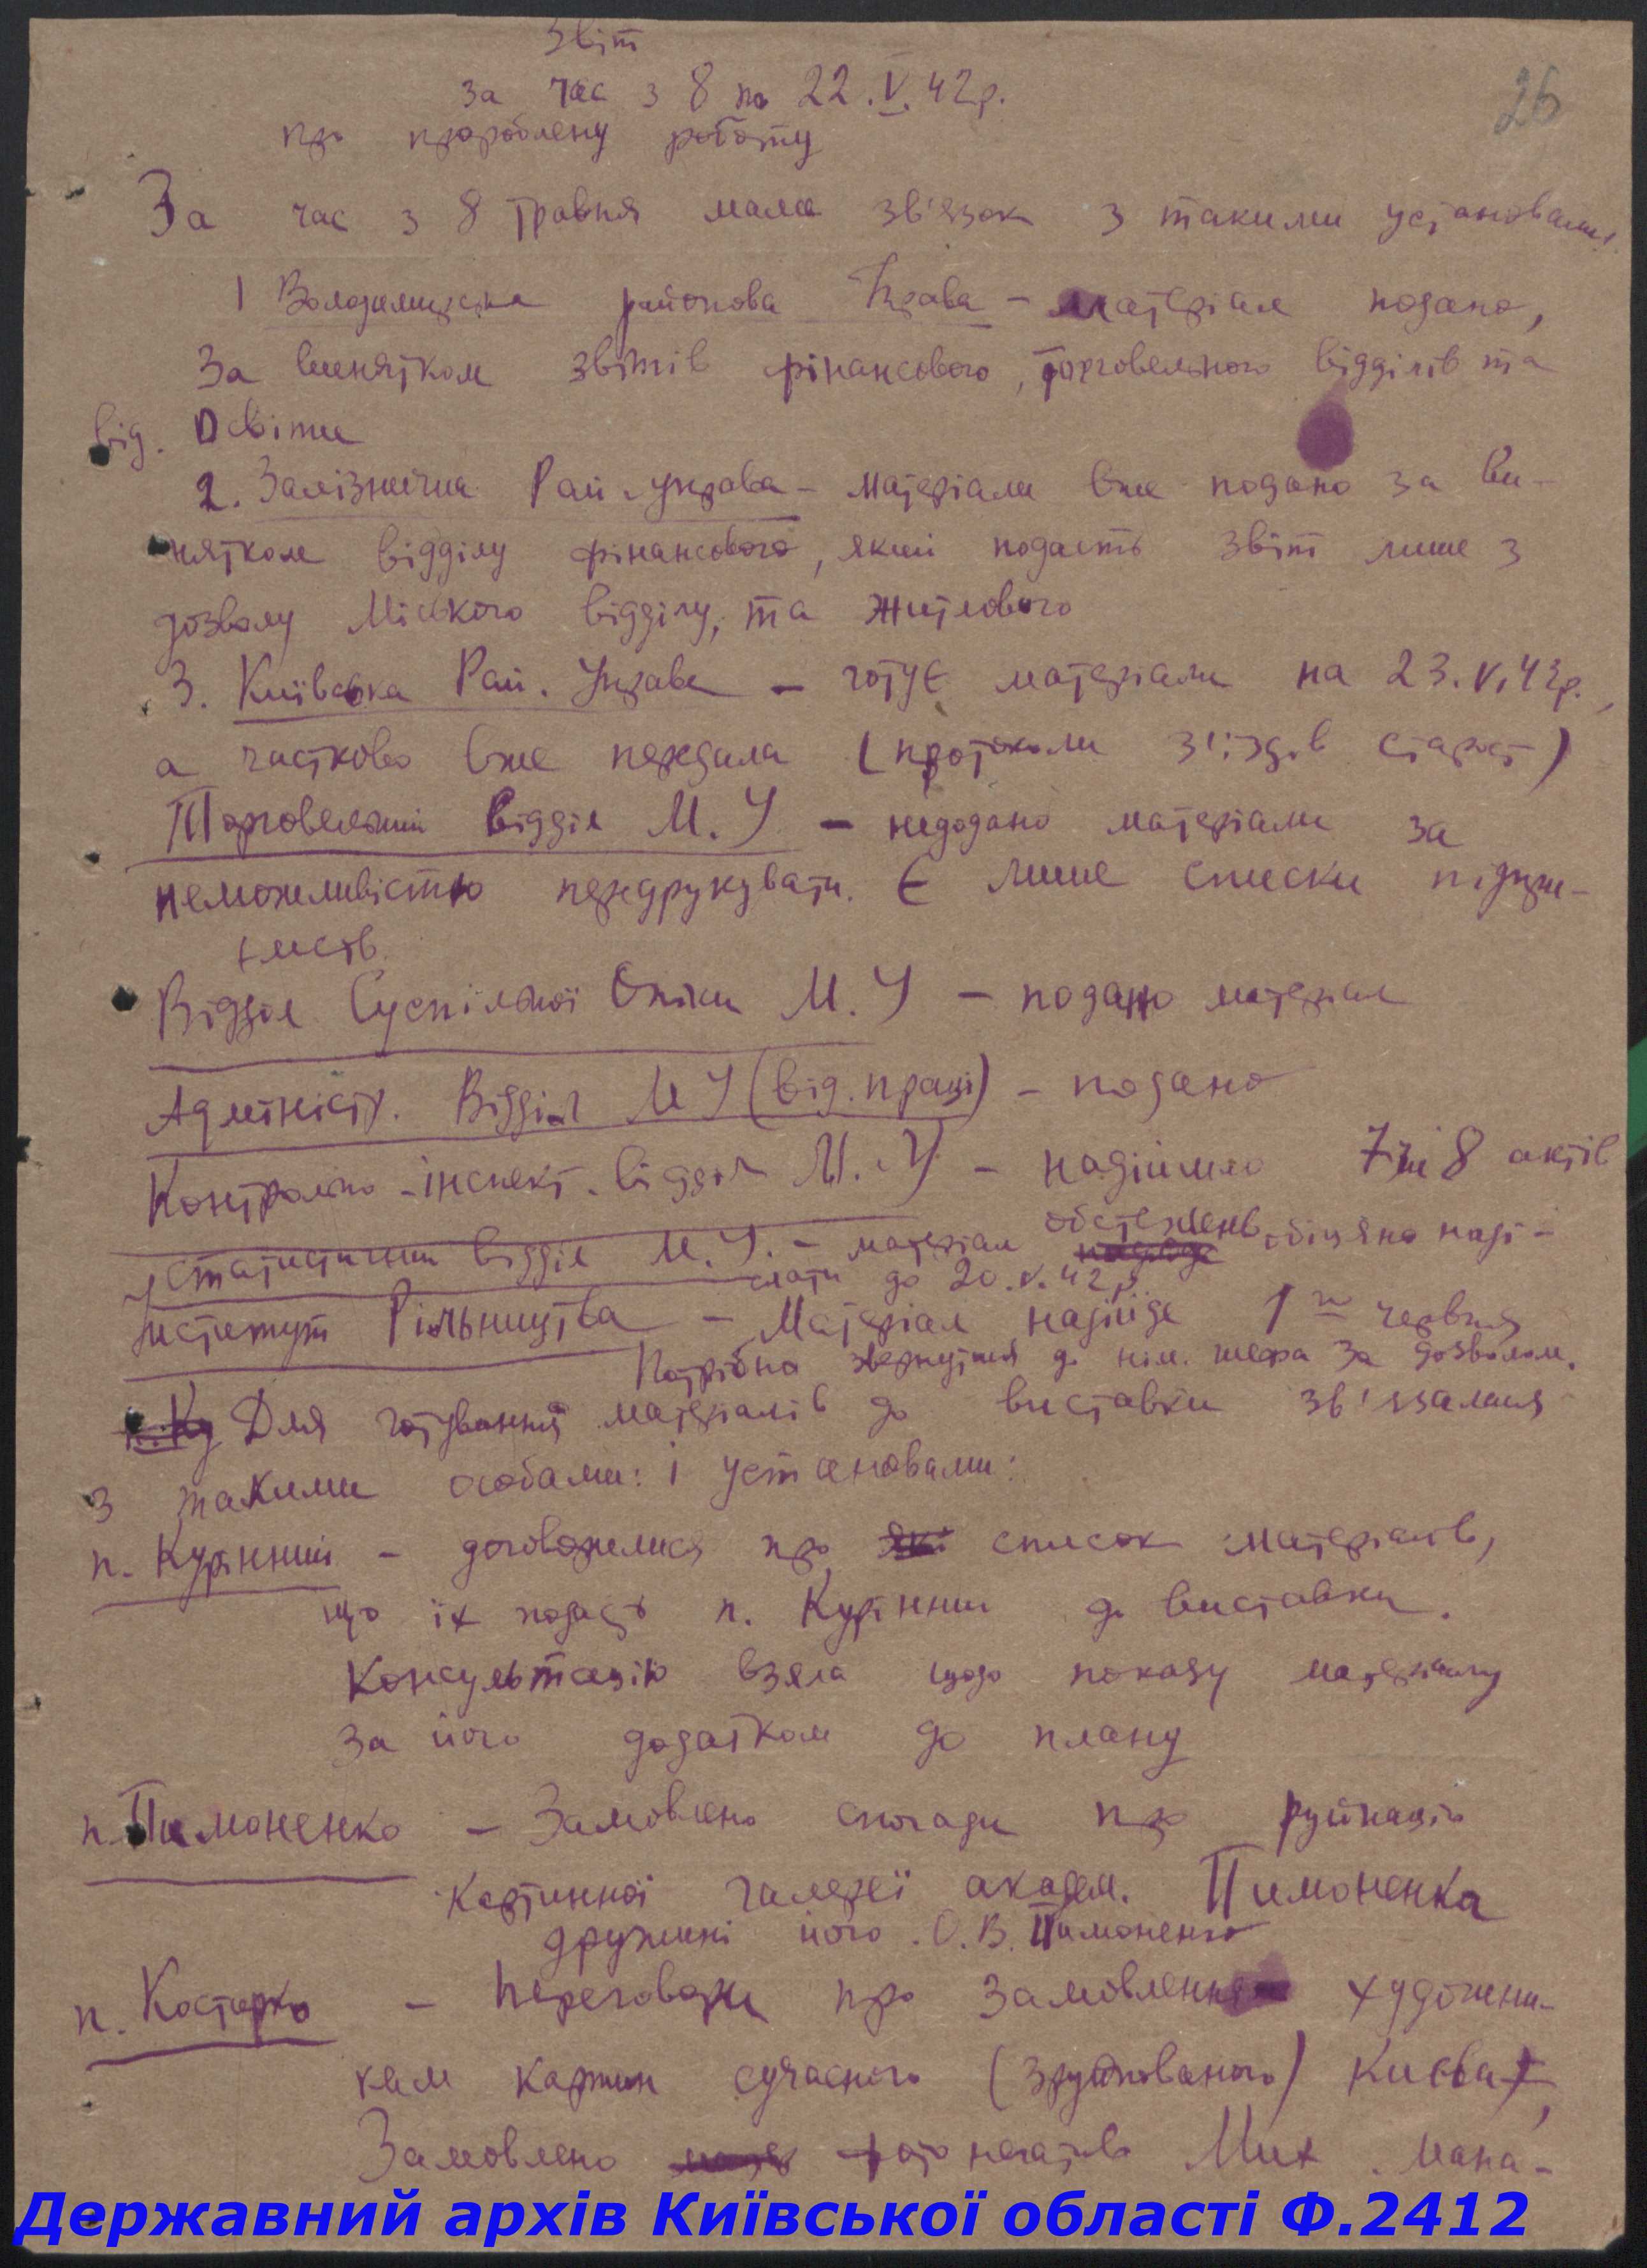 Звіт
за час з 8 по 22.V.42р.
26
про пророблену роботу
За час з 8 травня мала зв'язок з такими установами:
1 Володимирська районова Управа – матеріали подано,
За винятком звітів фінансового, торговельного відділів та
від. Освіти
2. Залізнична Рай. управа – матеріали вже подано за ви-
нятком відділу фінансового, який подасть звіт лише з
дозволу Міського відділу, та житлового
3. Київська Рай. Управа – готує матеріали на 23.V.42р.,
а частково вже передала (протоколи з'їздів старост)
Торговельний відділ М.У – недодано матеріали за
неможливістю передрукувати. Є лише списки підпри-
ємств.
Відділ Суспільної Опіки М.У – подано матеріал
Адміністр. Відділ МУ (від. праці) – подано
Контрольно-інспект. відділ М.У – надійшло 7 чи 8 актів
обстежень
Статистичний відділ М.У. – матеріал обіцяно наді-
слати до 20.V.42р.
Інститут Рільництва – Матеріал надійде 1го червня
Потрібно звернутися до нім. шефа за дозволом.
Для готування матеріалів до виставки зв'язалася
з такими особами: і установами:
п. Курінний – договорилися про які список матеріалів,
що їх подасть п. Курінний до виставки.
Консультацію взяла щодо показу матеріалу
за його додатком до плану
п. Пимоненко – Замовлено спогади про руйнацію
картинної галереї академ. Пимоненка
дружині його О.В. Пимоненко
п. Костирко – Переговори про замовлення художни-
кам картин сучасного (зруйнованого) Києва,
Замовлено фото негатив Мих. мана-
Державний архів Київської області Ф.2412